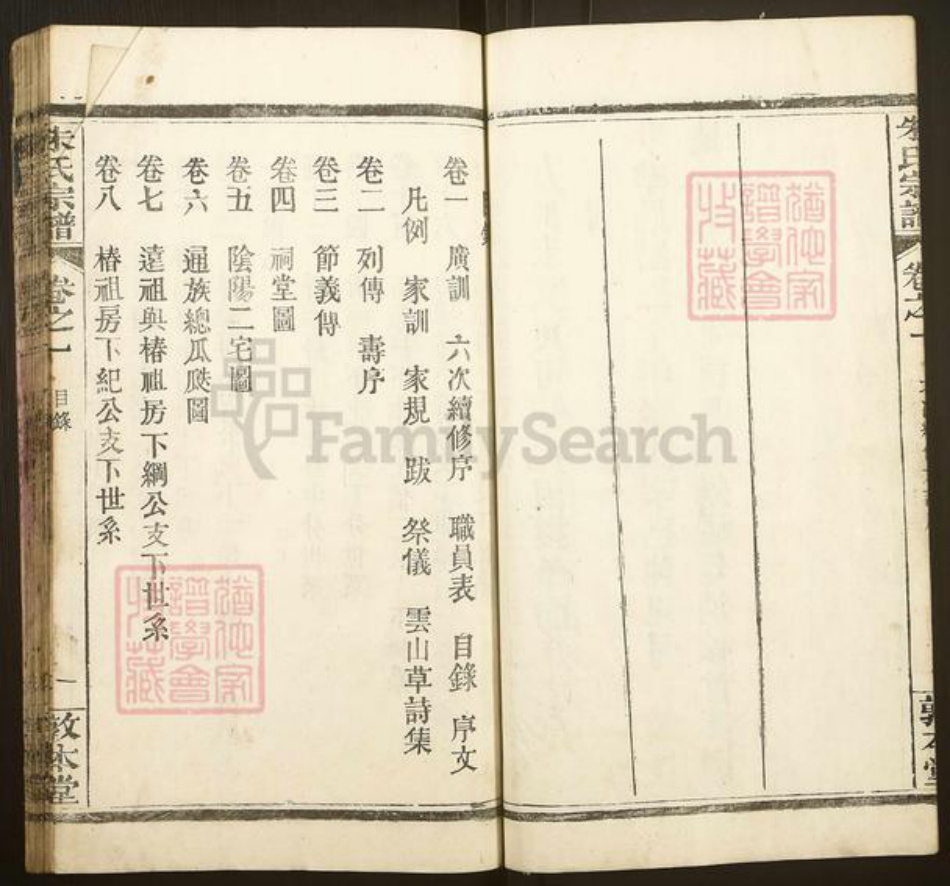 朱氏宗譜
卷之一
敦本堂
卷一 廣訓 六次續修序 職員表 目錄 序文
凡例 家訓 家規 跋 祭儀 雲山草詩集
卷二 列傳 壽序
卷三 節義傳
卷四 祠堂圖
卷五 陰陽二宅圖
卷六 通族總瓜瓞圖
卷七 遠祖與椿祖房下綱公支下世系
卷八 椿祖房下紀公支下世系
朱氏宗譜
卷之一
目錄
一
敦本堂
譜學會
收藏
譜學會
收藏
FamilySearch